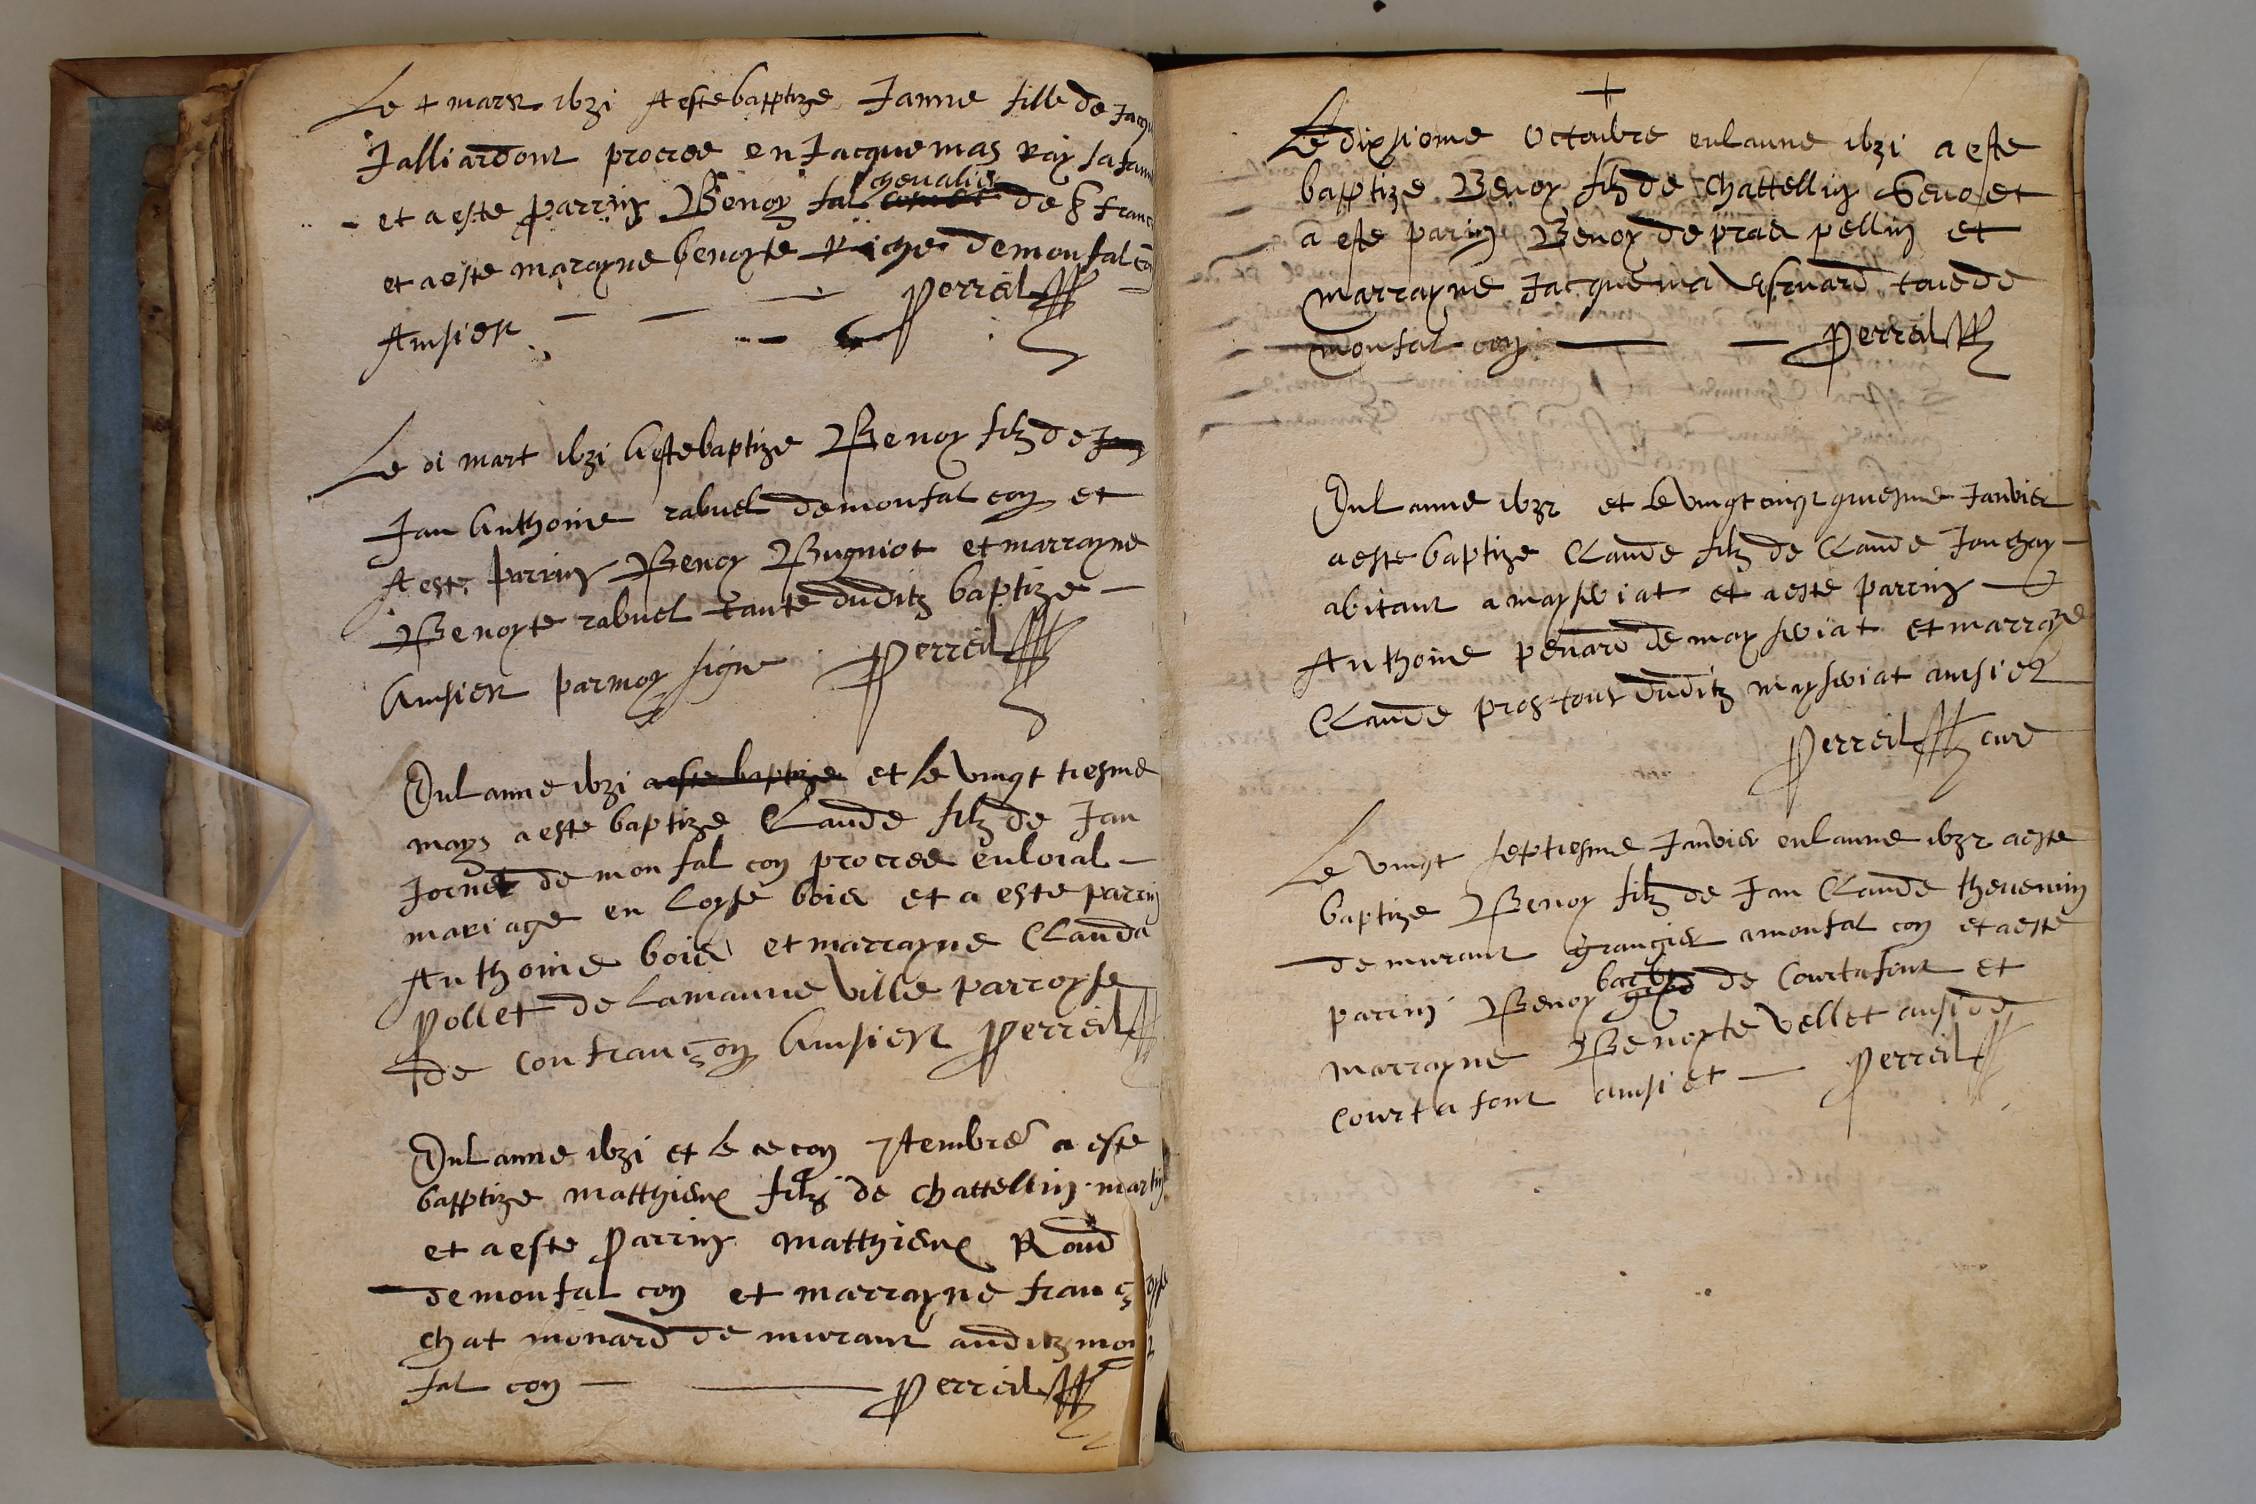 Le + mars 1621 A este bapptize Janne fille de Jacq
Jalliardont procree en Jacquemas Ray sa fam
et a este parrin Benoy fal chevalier de S franc
et a este marayne benoyte demonfalcon
Ainsi est Perreil
Le 01 mart 1621 A este baptize Benoy filz de Jan
Jan Anthoine rabuel demonfal con et
A este parrin Benoy Bugniot et marrayne
Benoyte rabuel tante duditz baptize
Ainsi est par moy signe Perreil
En l anne 1621 a este baptize et le vingt tiesme
mays a este baptize Claude filz de Jan
de monfal con procree en loial
mariage en Loyse bois et a este parrin
Anthoine bois et marrayne Clauda
Pollet de Lamanne ville parroyse
de confrançon Ainsi est Perreil
En l anne 1621 et le cecon 7tembre a este
bapptize matthieu filz de chattellin martin
et a este Parrin matthieu Roud
demonfal con et marrayne franç oyse
chat monard demurant auditz mon
fal con Perreil
+
Le dixsiome Octoubre en l anne 1621 a este
bapptize Benoy filz de Chattellin et
a este parin Benoy de prae pellin et
marrayne Jacquema toue de
monfal con Perreil
En l anne 1622 et le vingt cinq quiesme Janvier
a este baptize Claude filz de Claude Jonchay
abitant a maysiriat et a este parrin
Anthoine penard de maysiriat et marrayne
Claude duditz maysiriat ainsi est
Perreil cure
Le vingt septiesme Janvier en l anne 1622 a este
baptize Benoy filz de Jan Claude thevenin
demurant grangier a monfal con et a este
parrin Benoy de Courtafont et
marrayne Benoyte Vellet ausi de
courtafont ainsi et Perreil